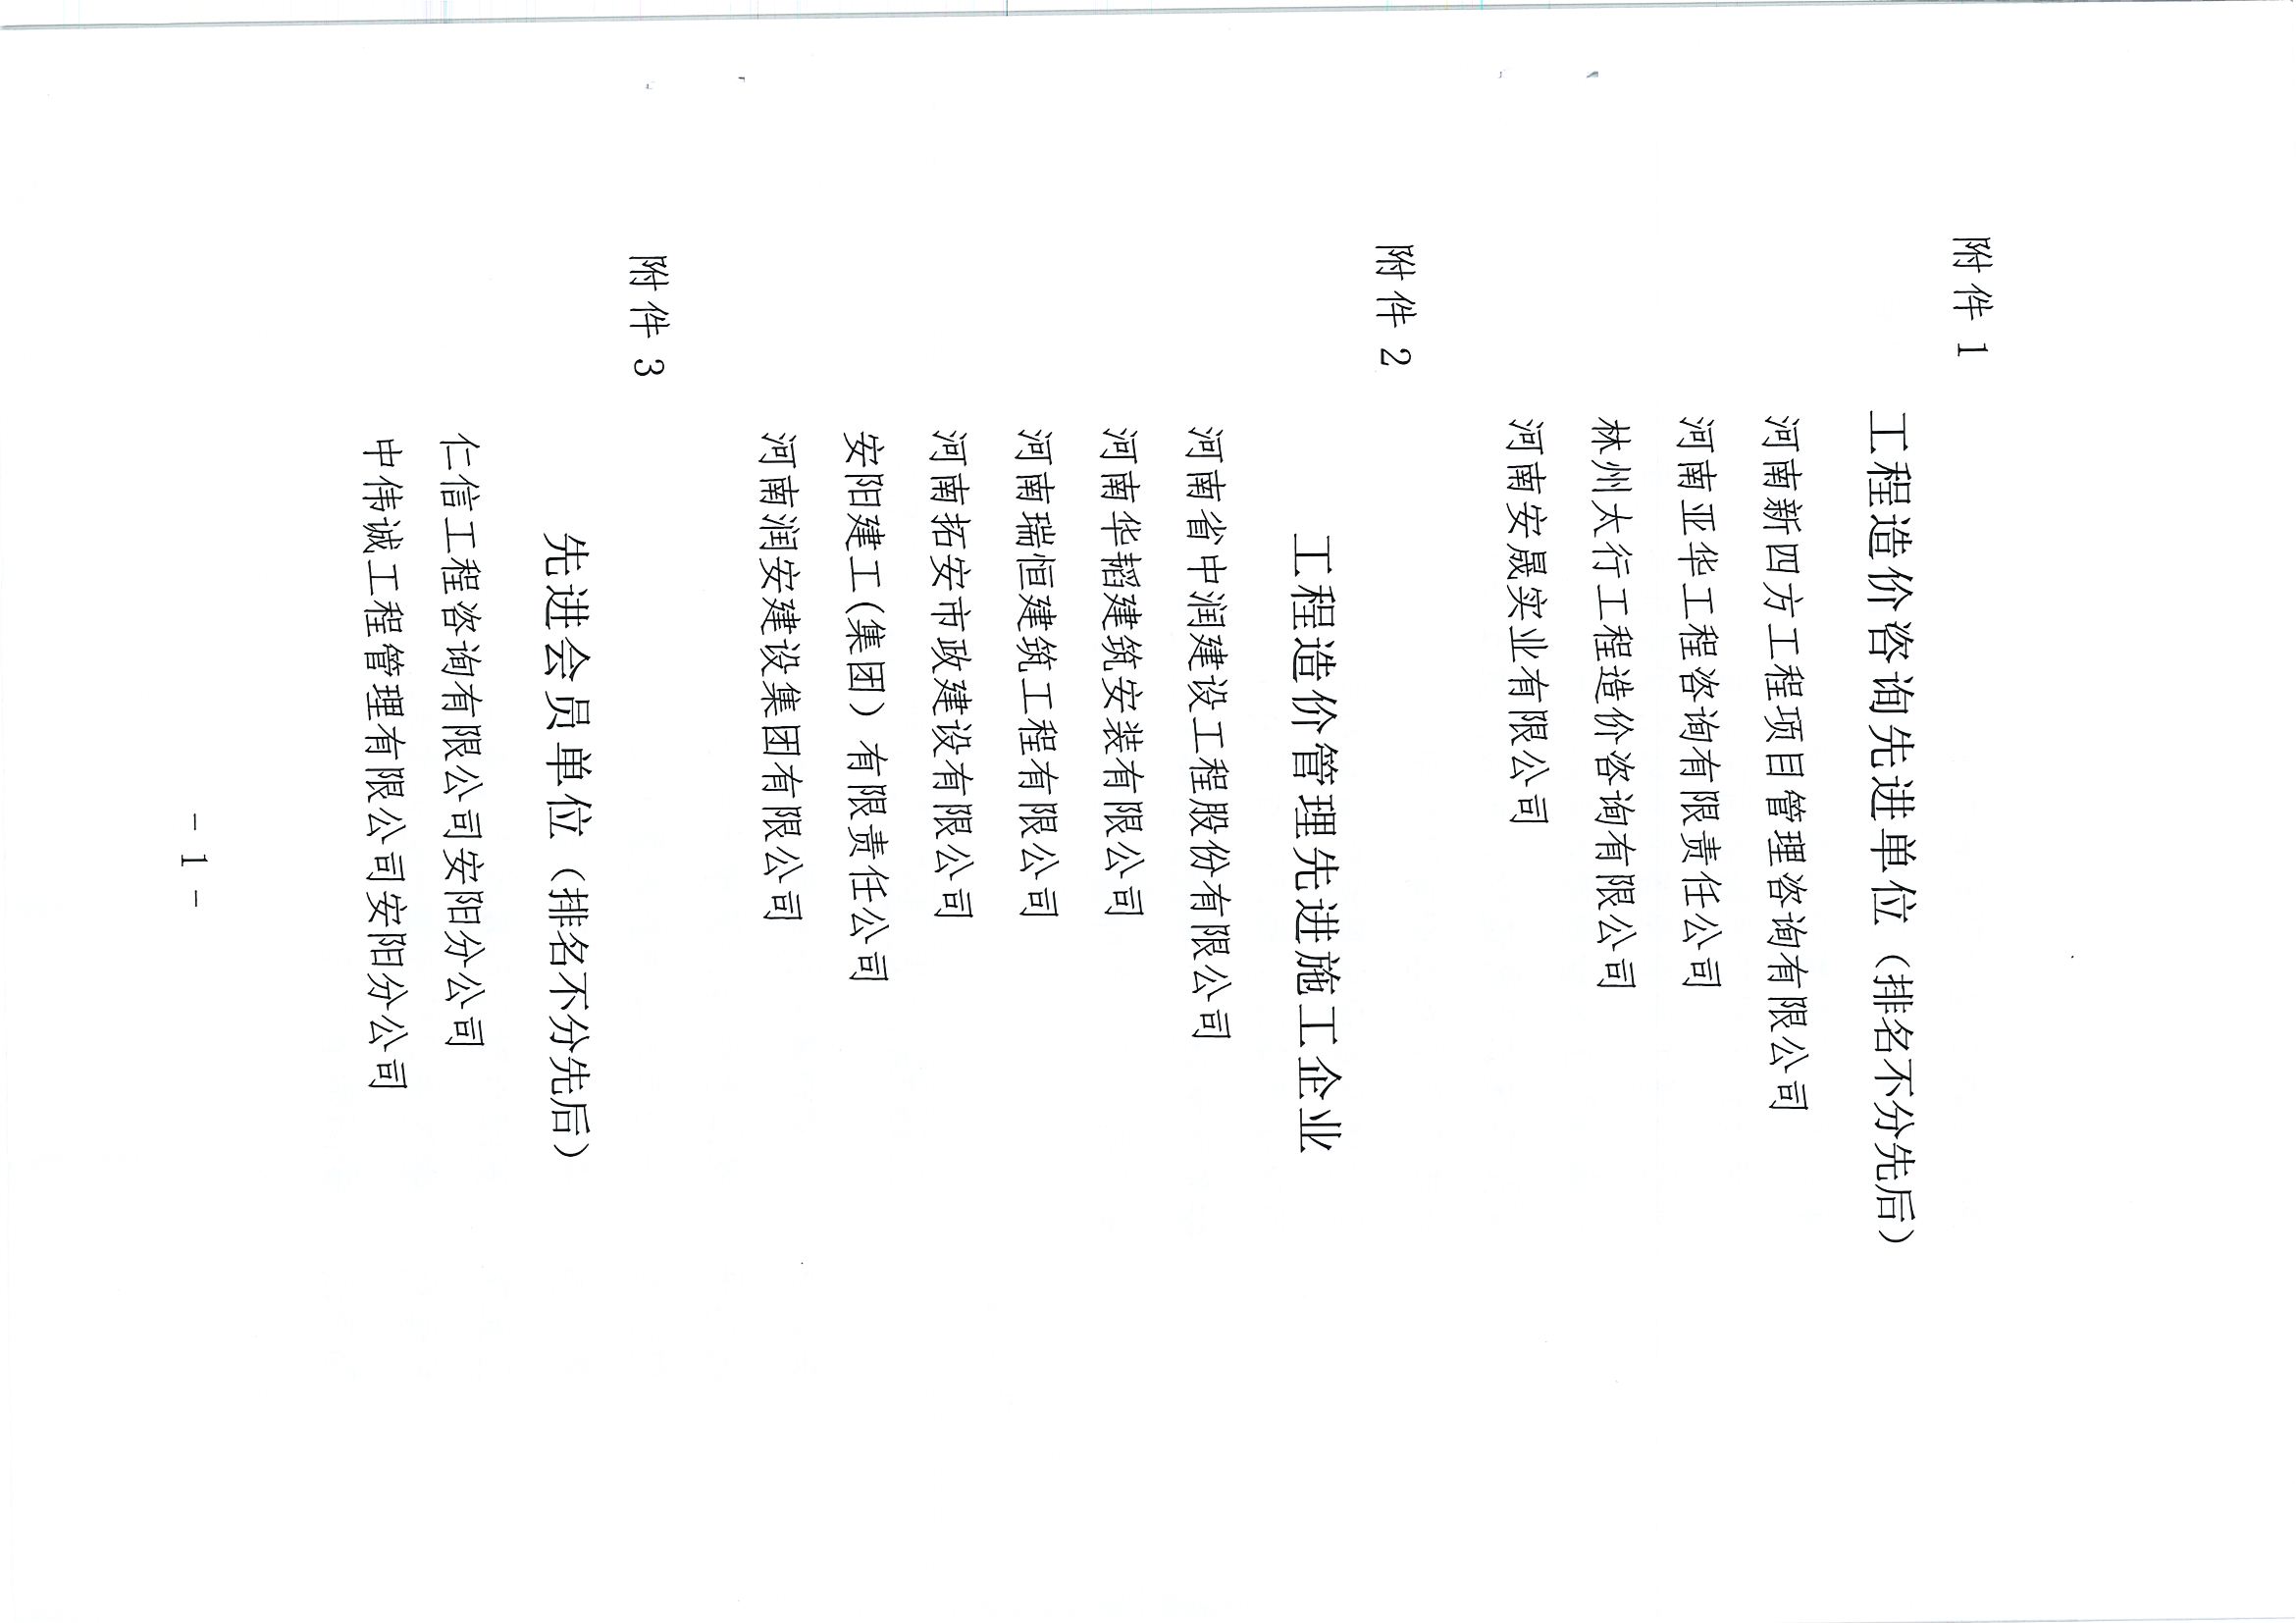 附件 1
工程造价咨询先进单位（排名不分先后）
河南新四方工程项目管理咨询有限公司
河南亚华工程咨询有限责任公司
林州太行工程造价咨询有限公司
河南安晟实业有限公司
附件 2
工程造价管理先进施工企业
河南省中润建设工程股份有限公司
河南华韬建筑安装有限公司
河南瑞恒建筑工程有限公司
河南拓安市政建设有限公司
安阳建工(集团）有限责任公司
河南润安建设集团有限公司
附件 3
先进会员单位（排名不分先后）
仁信工程咨询有限公司安阳分公司
中伟诚工程管理有限公司安阳分公司
- 1 -